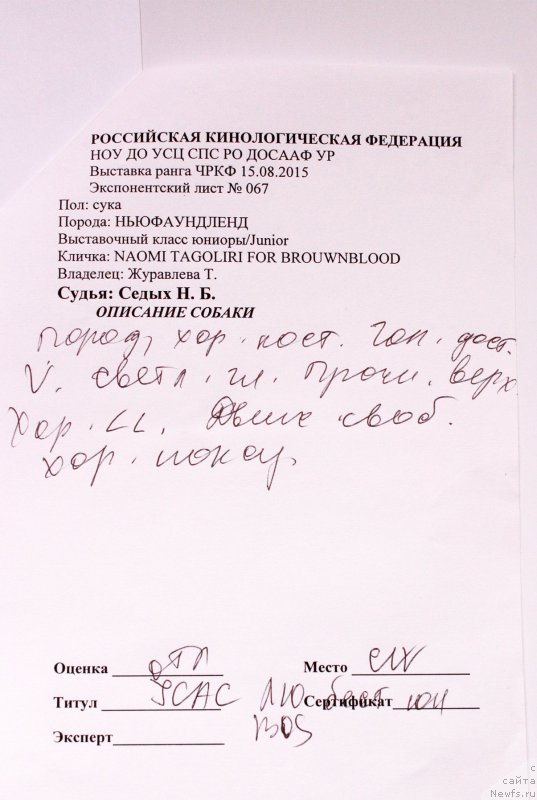 РОССИЙСКАЯ КИНОЛОГИЧЕСКАЯ ФЕДЕРАЦИЯ
НОУ ДО УСЦ СПС РО ДОСААФ УР
Выставка ранга ЧРКФ 15.08.2015
Экспонентский лист № 067
Пол: сука
Порода: НЬЮФАУНДЛЕНД
Выставочный класс юниоры/Junior
Кличка: NAOMI TAGOLIRI FOR BROUWNBLOOD
Владелец: Журавлева Т.
Судья: Седых Н. Б.
ОПИСАНИЕ СОБАКИ
Пород, хор. пост. гол. дост.
V. светл. гл. Прочн. верх.
Хор. LL. Движ. своб.
хор. показ.
Оценка отл Место CW
Титул JCAC ЛЮ Сертификат бест юн
BOS
Эксперт
с сайта
Newfs.ru